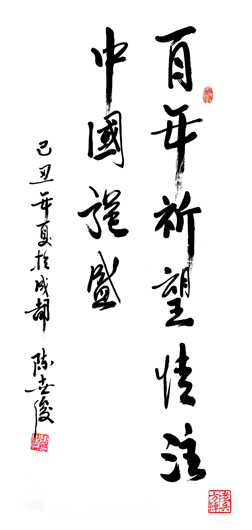 百年祈望情注
中國強盛
己丑年夏於成都 陈世俊